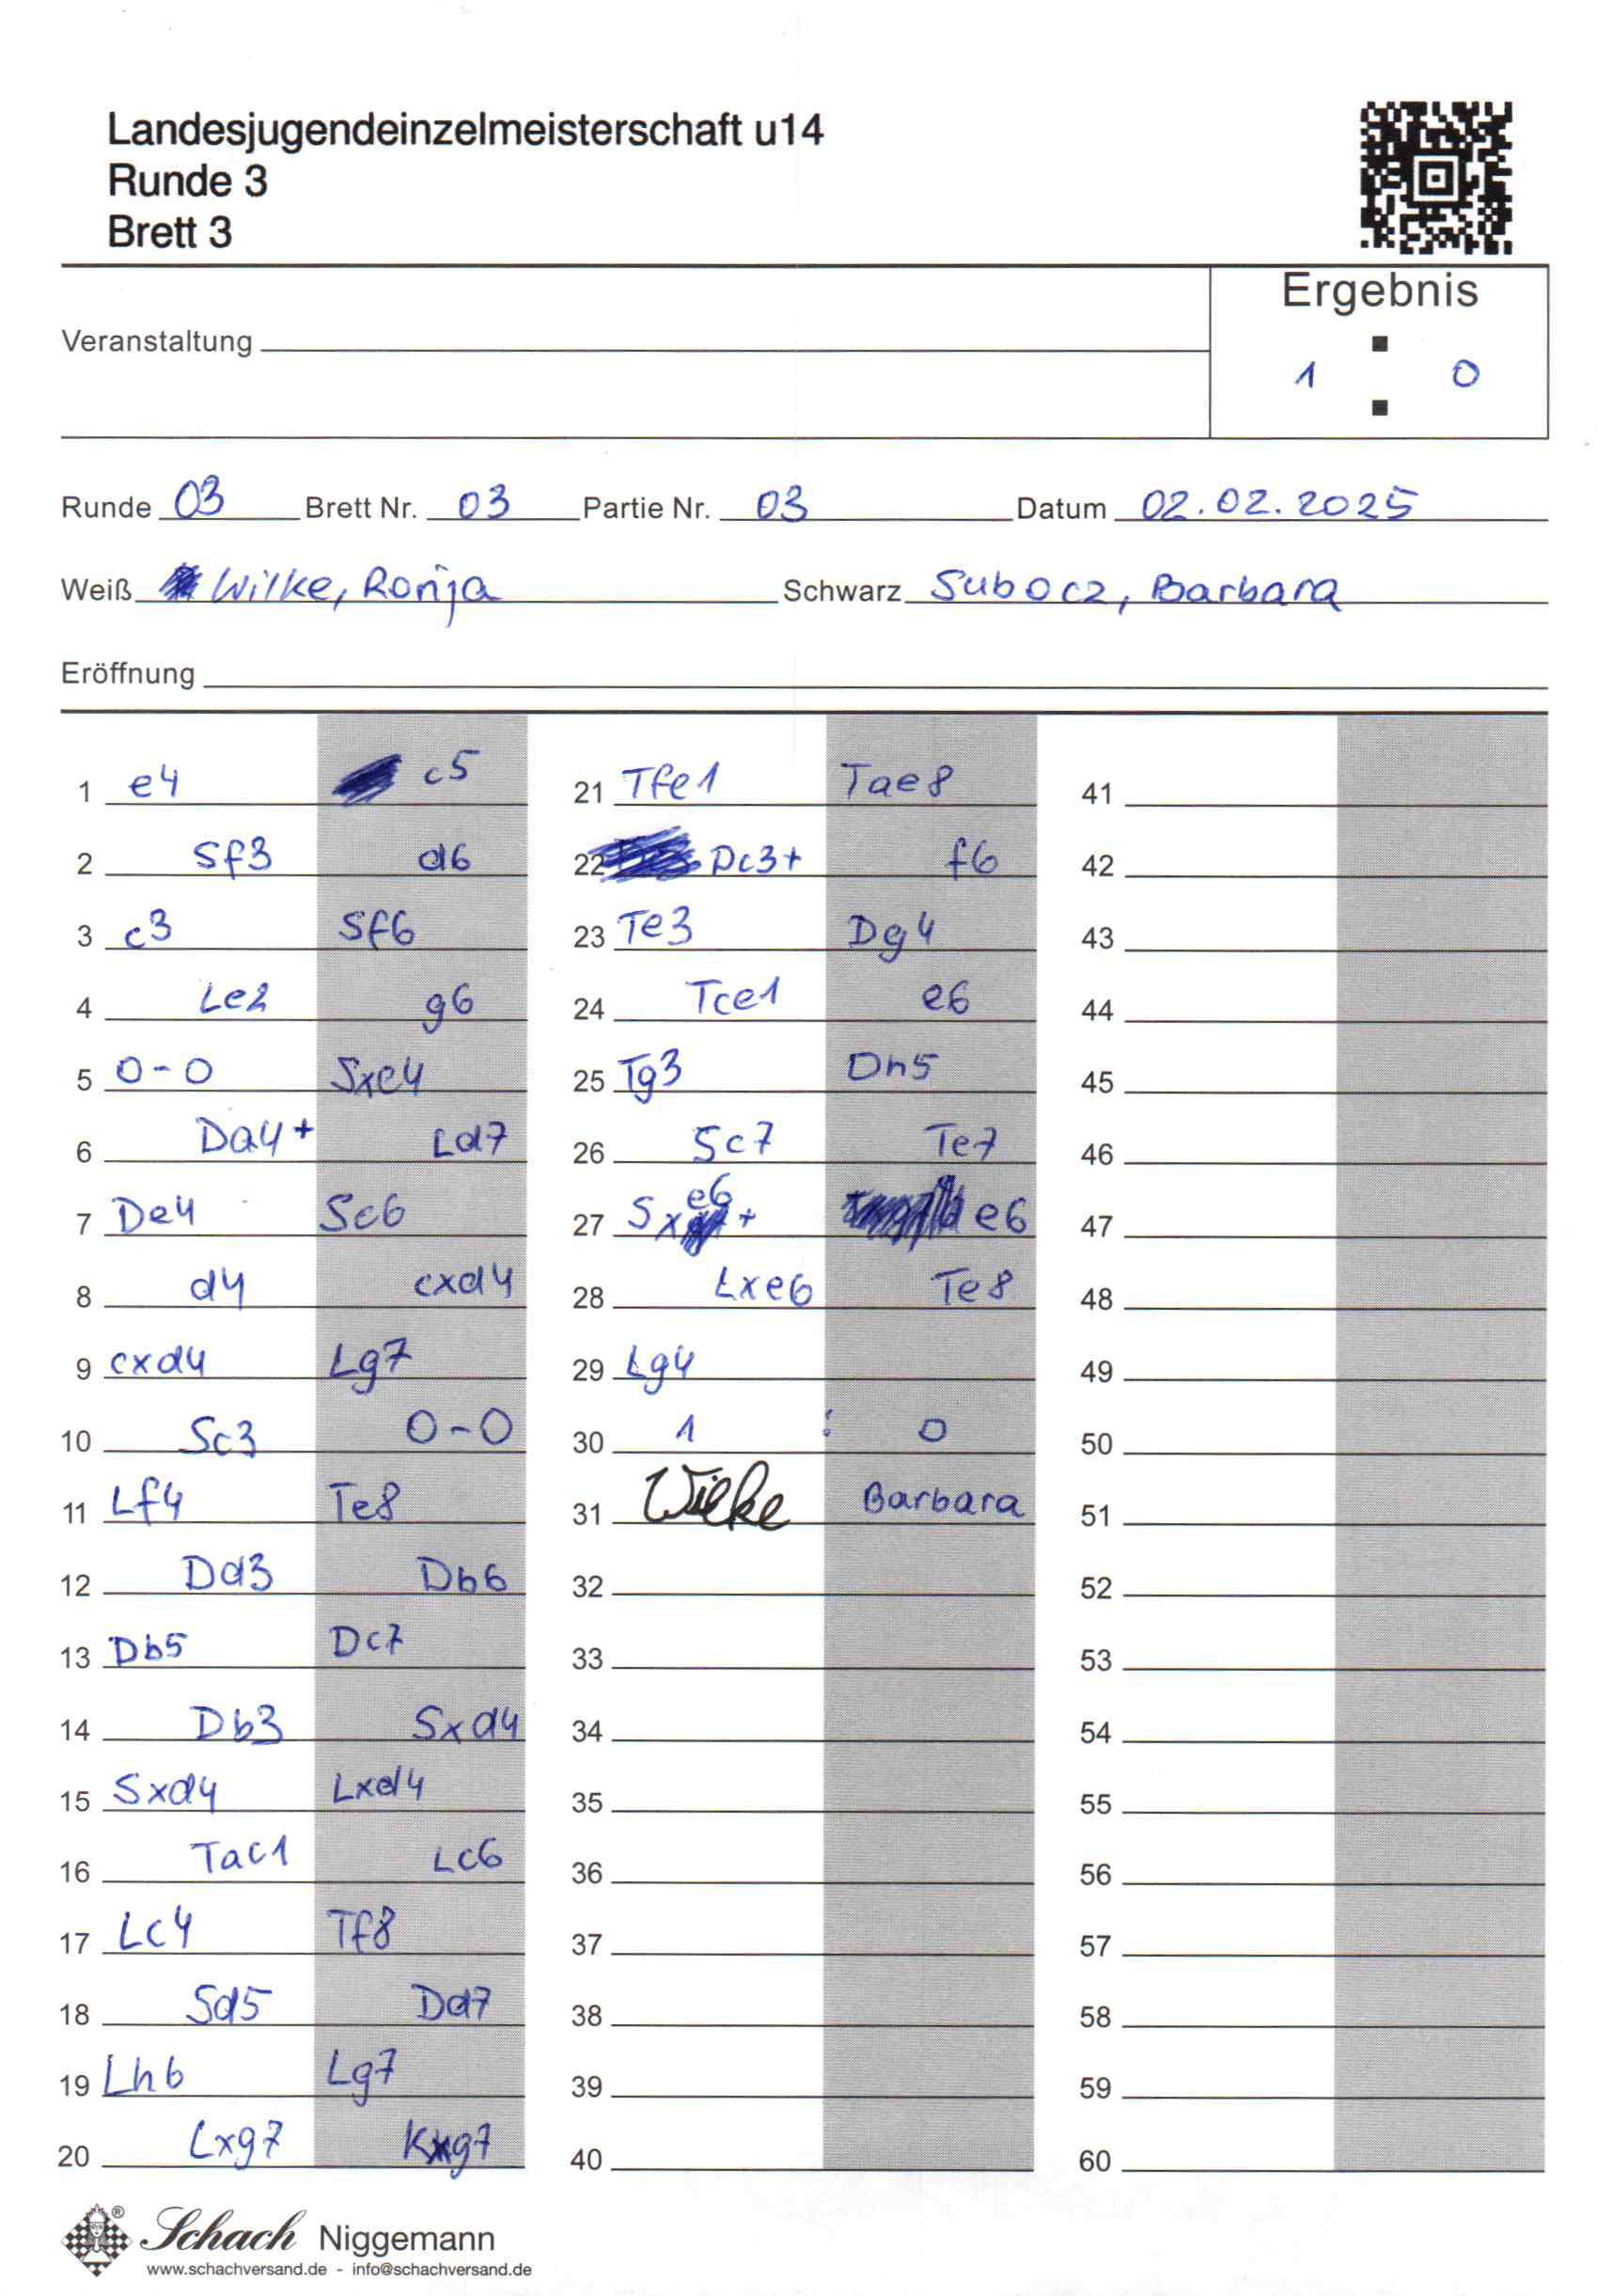 Landesjugendeinzelmeisterschaft u14
Runde 3
Brett 3
Ergebnis
Veranstaltung
1 : 0
Runde 03 Brett Nr. 03 Partie Nr. 03 Datum 02.02.2025
Weiß Wilke, Ronja Schwarz Subocz, Barbara
Eröffnung
1 e4 c5
2 Sf3 d6
3 c3 Sf6
4 Le2 g6
5 0-0 Sxe4
6 Da4+ Ld7
7 De4 Sc6
8 d4 cxd4
9 cxd4 Lg7
10 Sc3 0-0
11 Lf4 Te8
12 Dd3 Db6
13 Db5 Dc7
14 Db3 Sxd4
15 Sxd4 Lxd4
16 Tac1 Lc6
17 Lc4 Tf8
18 Sd5 Dd7
19 Lh6 Lg7
20 Lxg7 Kxg7
21 Tfe1 Tae8
22 Dc3+ f6
23 Te3 Dg4
24 Tce1 e6
25 Tg3 Dh5
26 Sc7 Te7
27 Sxe6+ e6
28 Lxe6 Te8
29 Lg4
30 1 : 0
31 Wilke Barbara
32
33
34
35
36
37
38
39
40
41
42
43
44
45
46
47
48
49
50
51
52
53
54
55
56
57
58
59
60
® Schach Niggemann
www.schachversand.de - info@schachversand.de